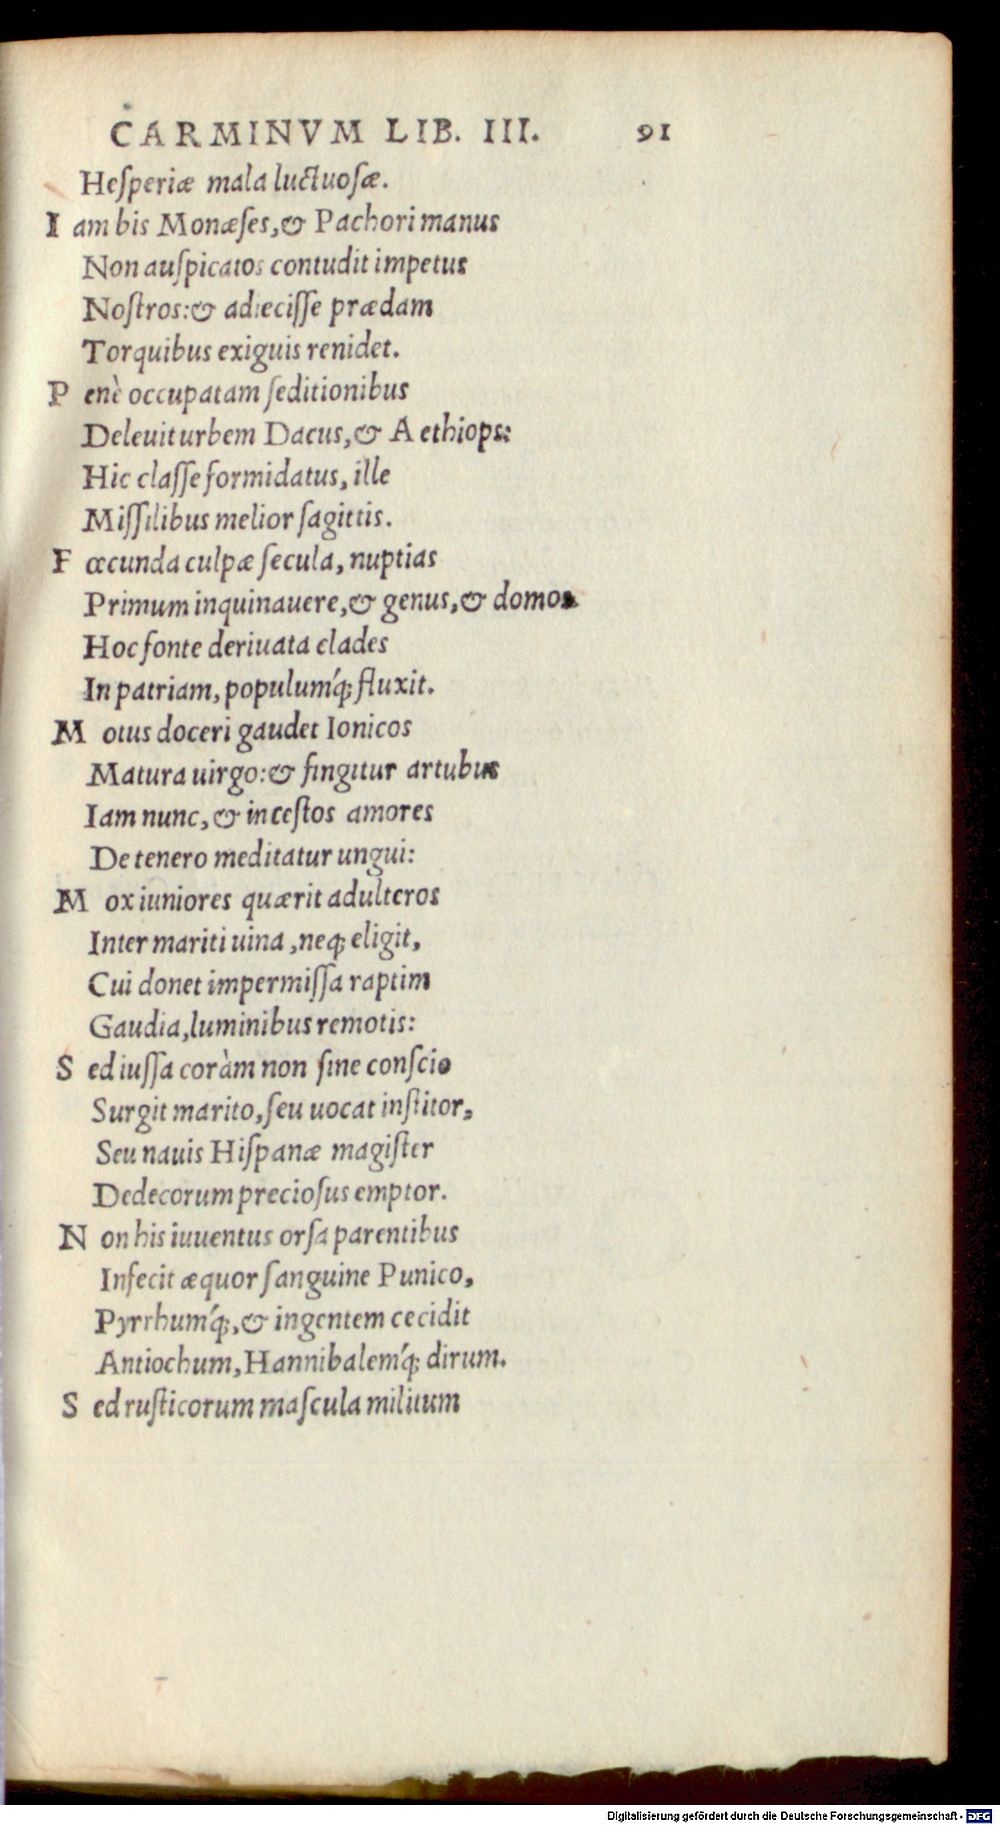 CARMINVM LIB. III. 91
Heſperiæ mala luctuoſæ.
I am bis Monæſes,& Pachori manus
Non auſpicatos contudit impetus
Noſtros:& adieciſſe prædam
Torquibus exiguis renidet.
P enè occupatam ſeditionibus
Deleuit urbem Dacus,& A ethiops:
Hic claſſe formidatus, ille
Miſſilibus melior ſagittis.
F œcunda culpæ ſecula, nuptias
Primum inquinauere,& genus,& domos.
Hoc fonte deriuata clades
In patriam, populumq́; fluxit.
M otus doceri gaudet Ionicos
Matura uirgo:& fingitur artubus
Iam nunc,& inceſtos amores
De tenero meditatur ungui:
M ox iuniores quærit adulteros
Inter mariti uina ,neq; eligit,
Cui donet impermiſſa raptim
Gaudia,luminibus remotis:
S ed iuſſa coràm non ſine conſcio
Surgit marito,ſeu uocat inſtitor,
Seu nauis Hiſpanæ magiſter
Dedecorum precioſus emptor.
N on his iuuentus orſa parentibus
Infecit æquor ſanguine Punico,
Pyrrhumq́;,& ingentem cecidit
Antiochum,Hannibalemq́; dirum.
S ed ruſticorum maſcula militum
Digitalisierung gefördert durch die Deutsche Forschungsgemeinschaft - DFG